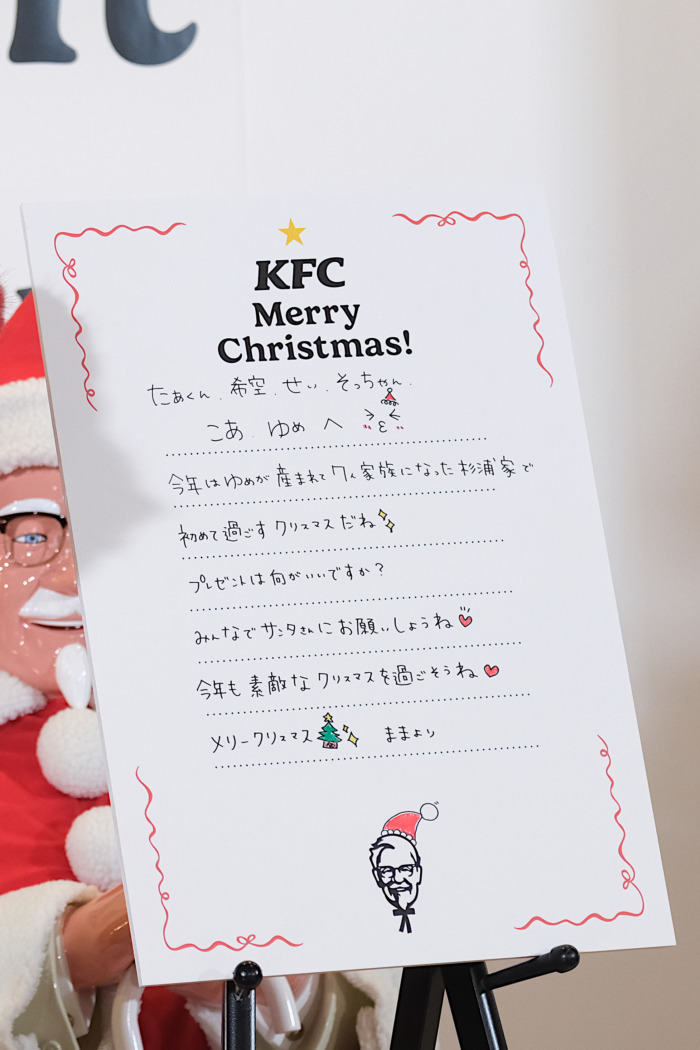 KFC
Merry
Christmas!
たぁくん、希空、せい、そっちゃん、
こあ、ゆめ へ
今年はゆめが産まれて7人家族になった杉浦家で
初めて過ごすクリスマスだね
プレゼントは何がいいですか？
みんなでサンタさんにお願いしましょうね
今年も素敵なクリスマスを過ごそうね
メリークリスマス ままより